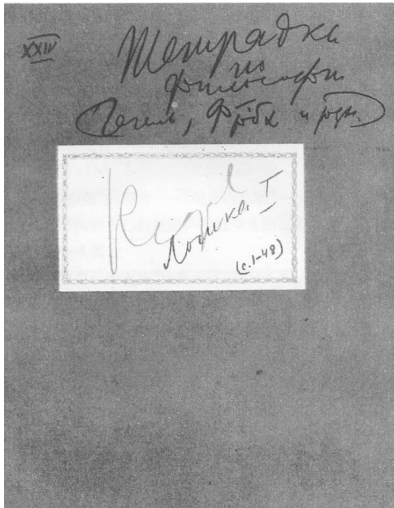 XXIV
Тетрадки
по
философии
(Гегель, Фрбх и рзн.)
Hegel
Логика I
(с. 1-48)